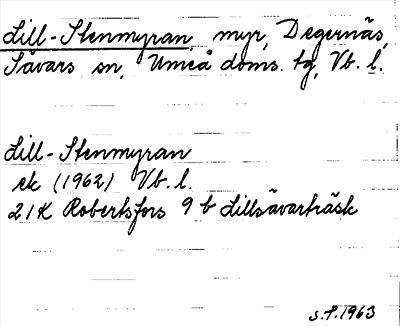 Lill-Stenmyran, myr, Degernäs,
Sävars sn, Umeå doms. tg, Vb. l.
Lill-Stenmyran
ek (1962) Vb. l.
21K Robertsfors 9 b Lillsävarträsk
S.P.1963